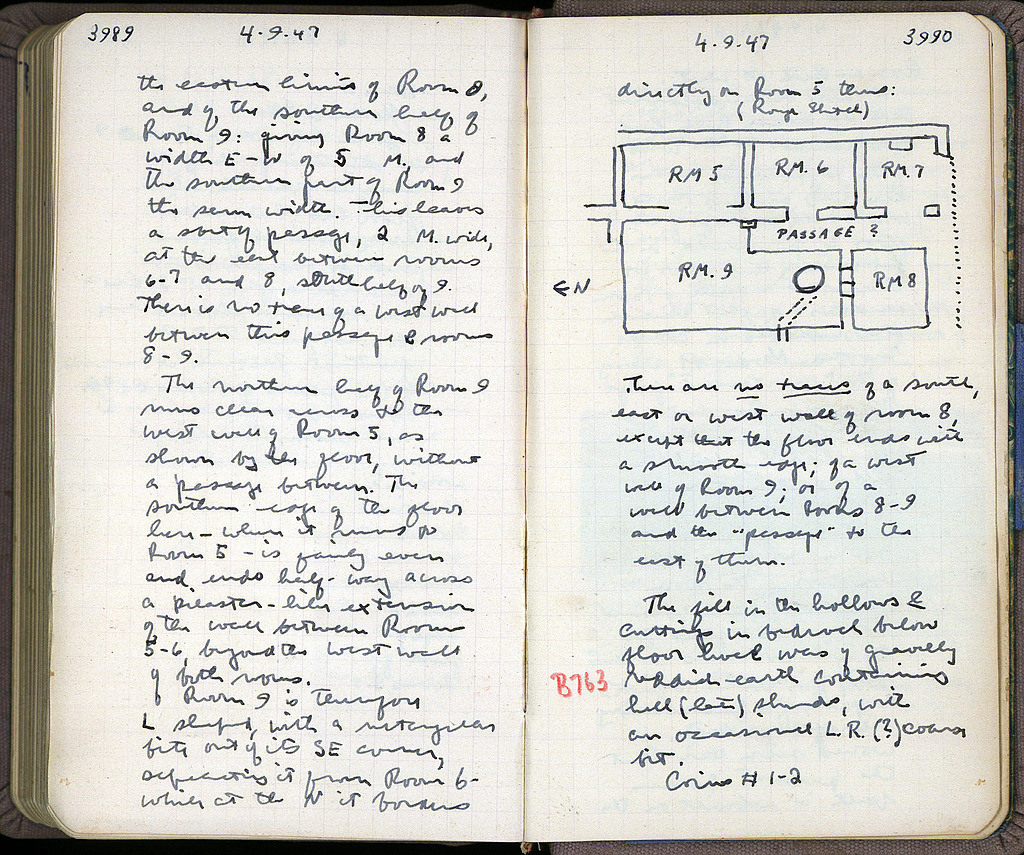 3989
4-9-47
the eastern limits of Room 8,
and of the southern half of
Room 9: giving Room 8 a
width E-W of 5 M. and
the southern part of Room 9
the same width. This leaves
a sort of passage, 2 M. wide,
at the east between rooms
6-7 and 8, south half of 9.
There is no trace of a west wall
between this passage & rooms
8-9.
The northern half of Room 9
runs clear across to the
west wall of Room 5, as
shown by the floor, without
a passage between. The
southern edge of the floor
here - where it runs to
Room 5 - is fairly even
and ends half-way across
a pilaster-like extension
of the wall between Rooms
5-6, beyond the west wall
of both rooms.
Room 9 is therefore
L shaped, with a rectangular
bite out of its SE corner,
separating it from Room 6-
while at the N it borders
4-9-47
3990
directly on Room 5 thus:
(Rough Sketch)
RM 5
RM. 6
RM. 7
PASSAGE ?
RM. 9
RM 8
N
There are no traces of a south,
east or west wall of room 8,
except that the floor ends with
a smooth edge; of a west
wall of Room 9; or of a
wall between rooms 8-9
and the "passage" to the
east of them.
The fill in the hollows &
cuttings in bedrock below
floor level was of gravelly
B763
reddish earth containing
hell (late) sherds, with
an occasional L.R. (?) coarse
bit.
Coins # 1-2